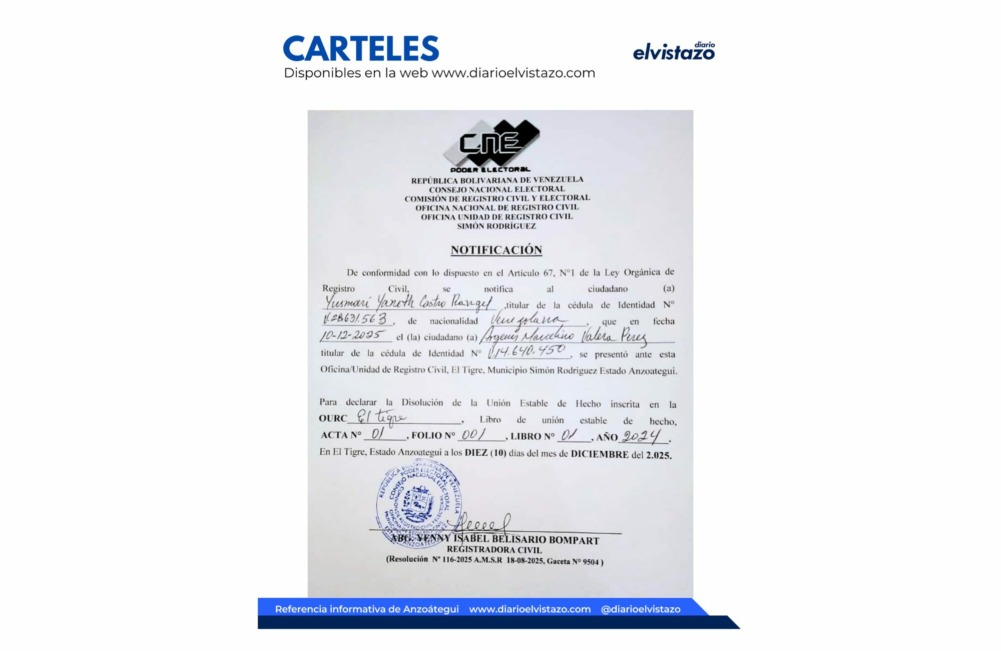 CARTELES
Disponibles en la web www.diarioelvistazo.com
diario
elvistazo
CNE
PODER ELECTORAL
REPÚBLICA BOLIVARIANA DE VENEZUELA
CONSEJO NACIONAL ELECTORAL
COMISIÓN DE REGISTRO CIVIL Y ELECTORAL
OFICINA NACIONAL DE REGISTRO CIVIL
OFICINA UNIDAD DE REGISTRO CIVIL
SIMÓN RODRÍGUEZ
NOTIFICACIÓN
De conformidad con lo dispuesto en el Artículo 67, N°1 de la Ley Orgánica de
Registro Civil, se notifica al ciudadano (a)
Yusmari Yaneth Castro Rangel, titular de la cédula de Identidad N°
V28631.563, de nacionalidad Venezolana, que en fecha
10-12-2025 el (la) ciudadano (a) Argenis Marcelino Valera Perez
titular de la cédula de Identidad N° V14.640.450, se presentó ante esta
Oficina/Unidad de Registro Civil, El Tigre, Municipio Simón Rodriguez Estado Anzoategui.
Para declarar la Disolución de la Unión Estable de Hecho inscrita en la
OURC El tigre, Libro de unión estable de hecho,
ACTA N° 01, FOLIO N° 001, LIBRO N° 01, AÑO 2024.
En El Tigre, Estado Anzoategui a los DIEZ (10) días del mes de DICIEMBRE del 2.025.
REPÚBLICA BOLIVARIANA DE VENEZUELA
PODER ELECTORAL
CONSEJO NACIONAL ELECTORAL
ABG. YENNY ISABEL BELISARIO BOMPART
REGISTRADORA CIVIL
(Resolución N° 116-2025 A.M.S.R 18-08-2025, Gaceta N° 9504 )
Referencia informativa de Anzoátegui www.diarioelvistazo.com @diarioelvistazo